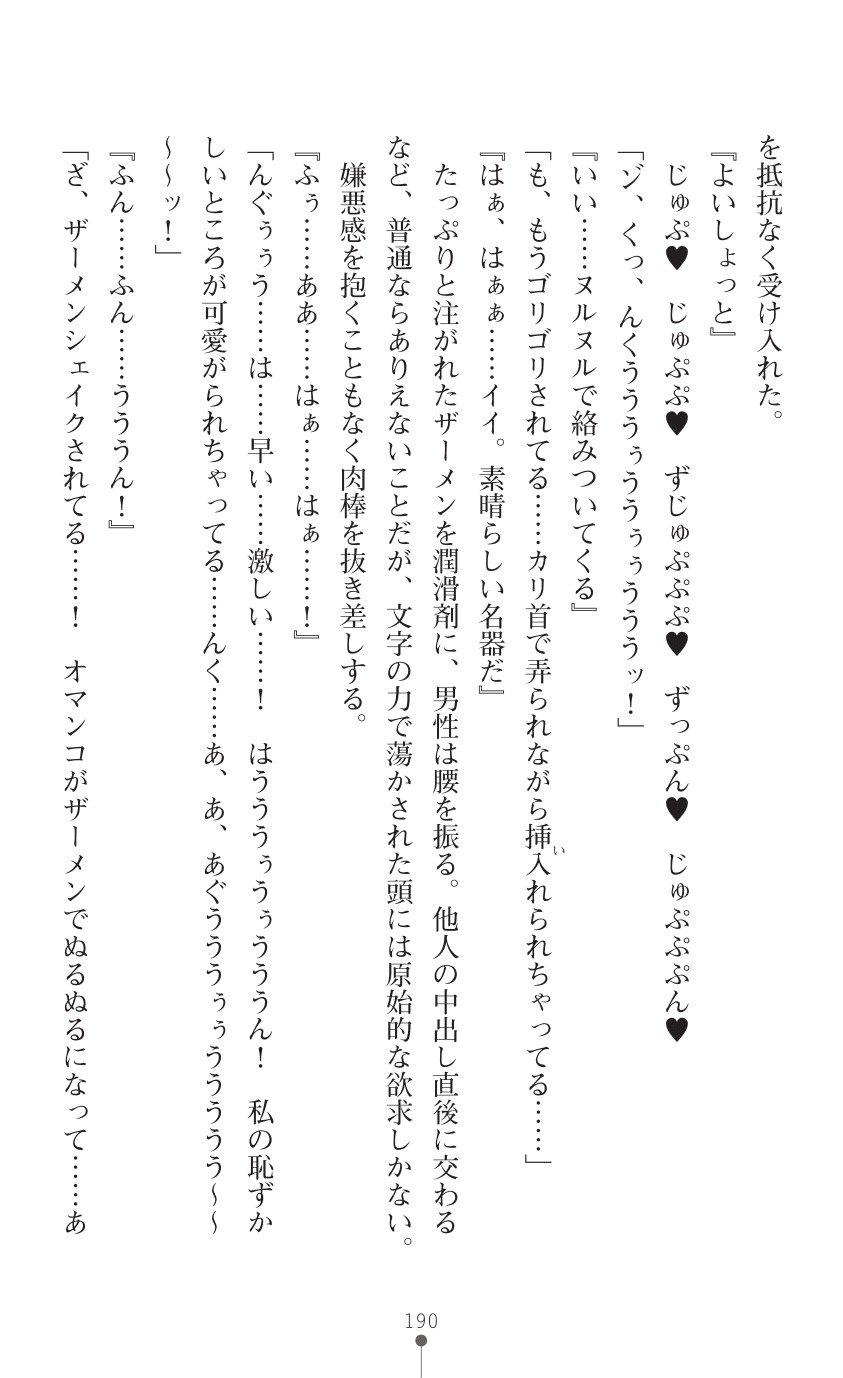 を抵抗なく受け入れた。
『よいしょっと』
　じゅぷ♥　じゅぷぷ♥　ずじゅぷぷぷ♥　ずっぷん♥　じゅぷぷぷん♥
「ゾ、くっ、んくうううぅううぅぅうううッ！」
『いい……ヌルヌルで絡みついてくる』
「も、もうゴリゴリされてる……カリ首で弄られながら挿入れられちゃってる……」
い
『はぁ、はぁぁ……イイ。素晴らしい名器だ』
　たっぷりと注がれたザーメンを潤滑剤に、男性は腰を振る。他人の中出し直後に交わる
など、普通ならありえないことだが、文字の力で蕩かされた頭には原始的な欲求しかない。
　嫌悪感を抱くこともなく肉棒を抜き差しする。
『ふぅ……ああ……はぁ……はぁ……！』
「んぐぅぅう……は……早い……激しい……！　はうううぅうぅうううん！　私の恥ずか
しいところが可愛がられちゃってる……んく……あ、あ、あぐうううぅぅううううう～～
～～ッ！」
『ふん……ふん……うううん！』
「ざ、ザーメンシェイクされてる……！　オマンコがザーメンでぬるぬるになって……あ
190